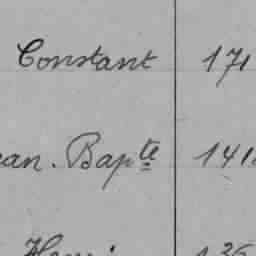 Constant 171
ean. Bapte 141
Henri 136